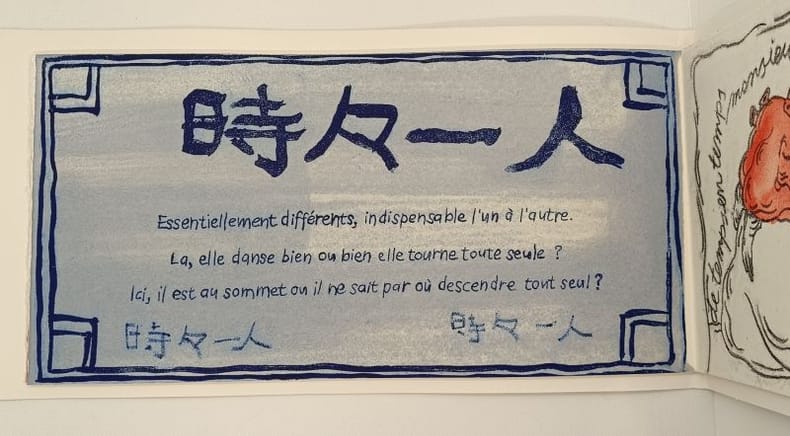 時々一人
Essentiellement différents, indispensable l'un à l'autre.
La, elle danse bien ou bien elle tourne toute seule ?
Ici, il est au sommet ou il ne sait par où descendre tout seul ?
時々一人
時々一人
temps monsieu